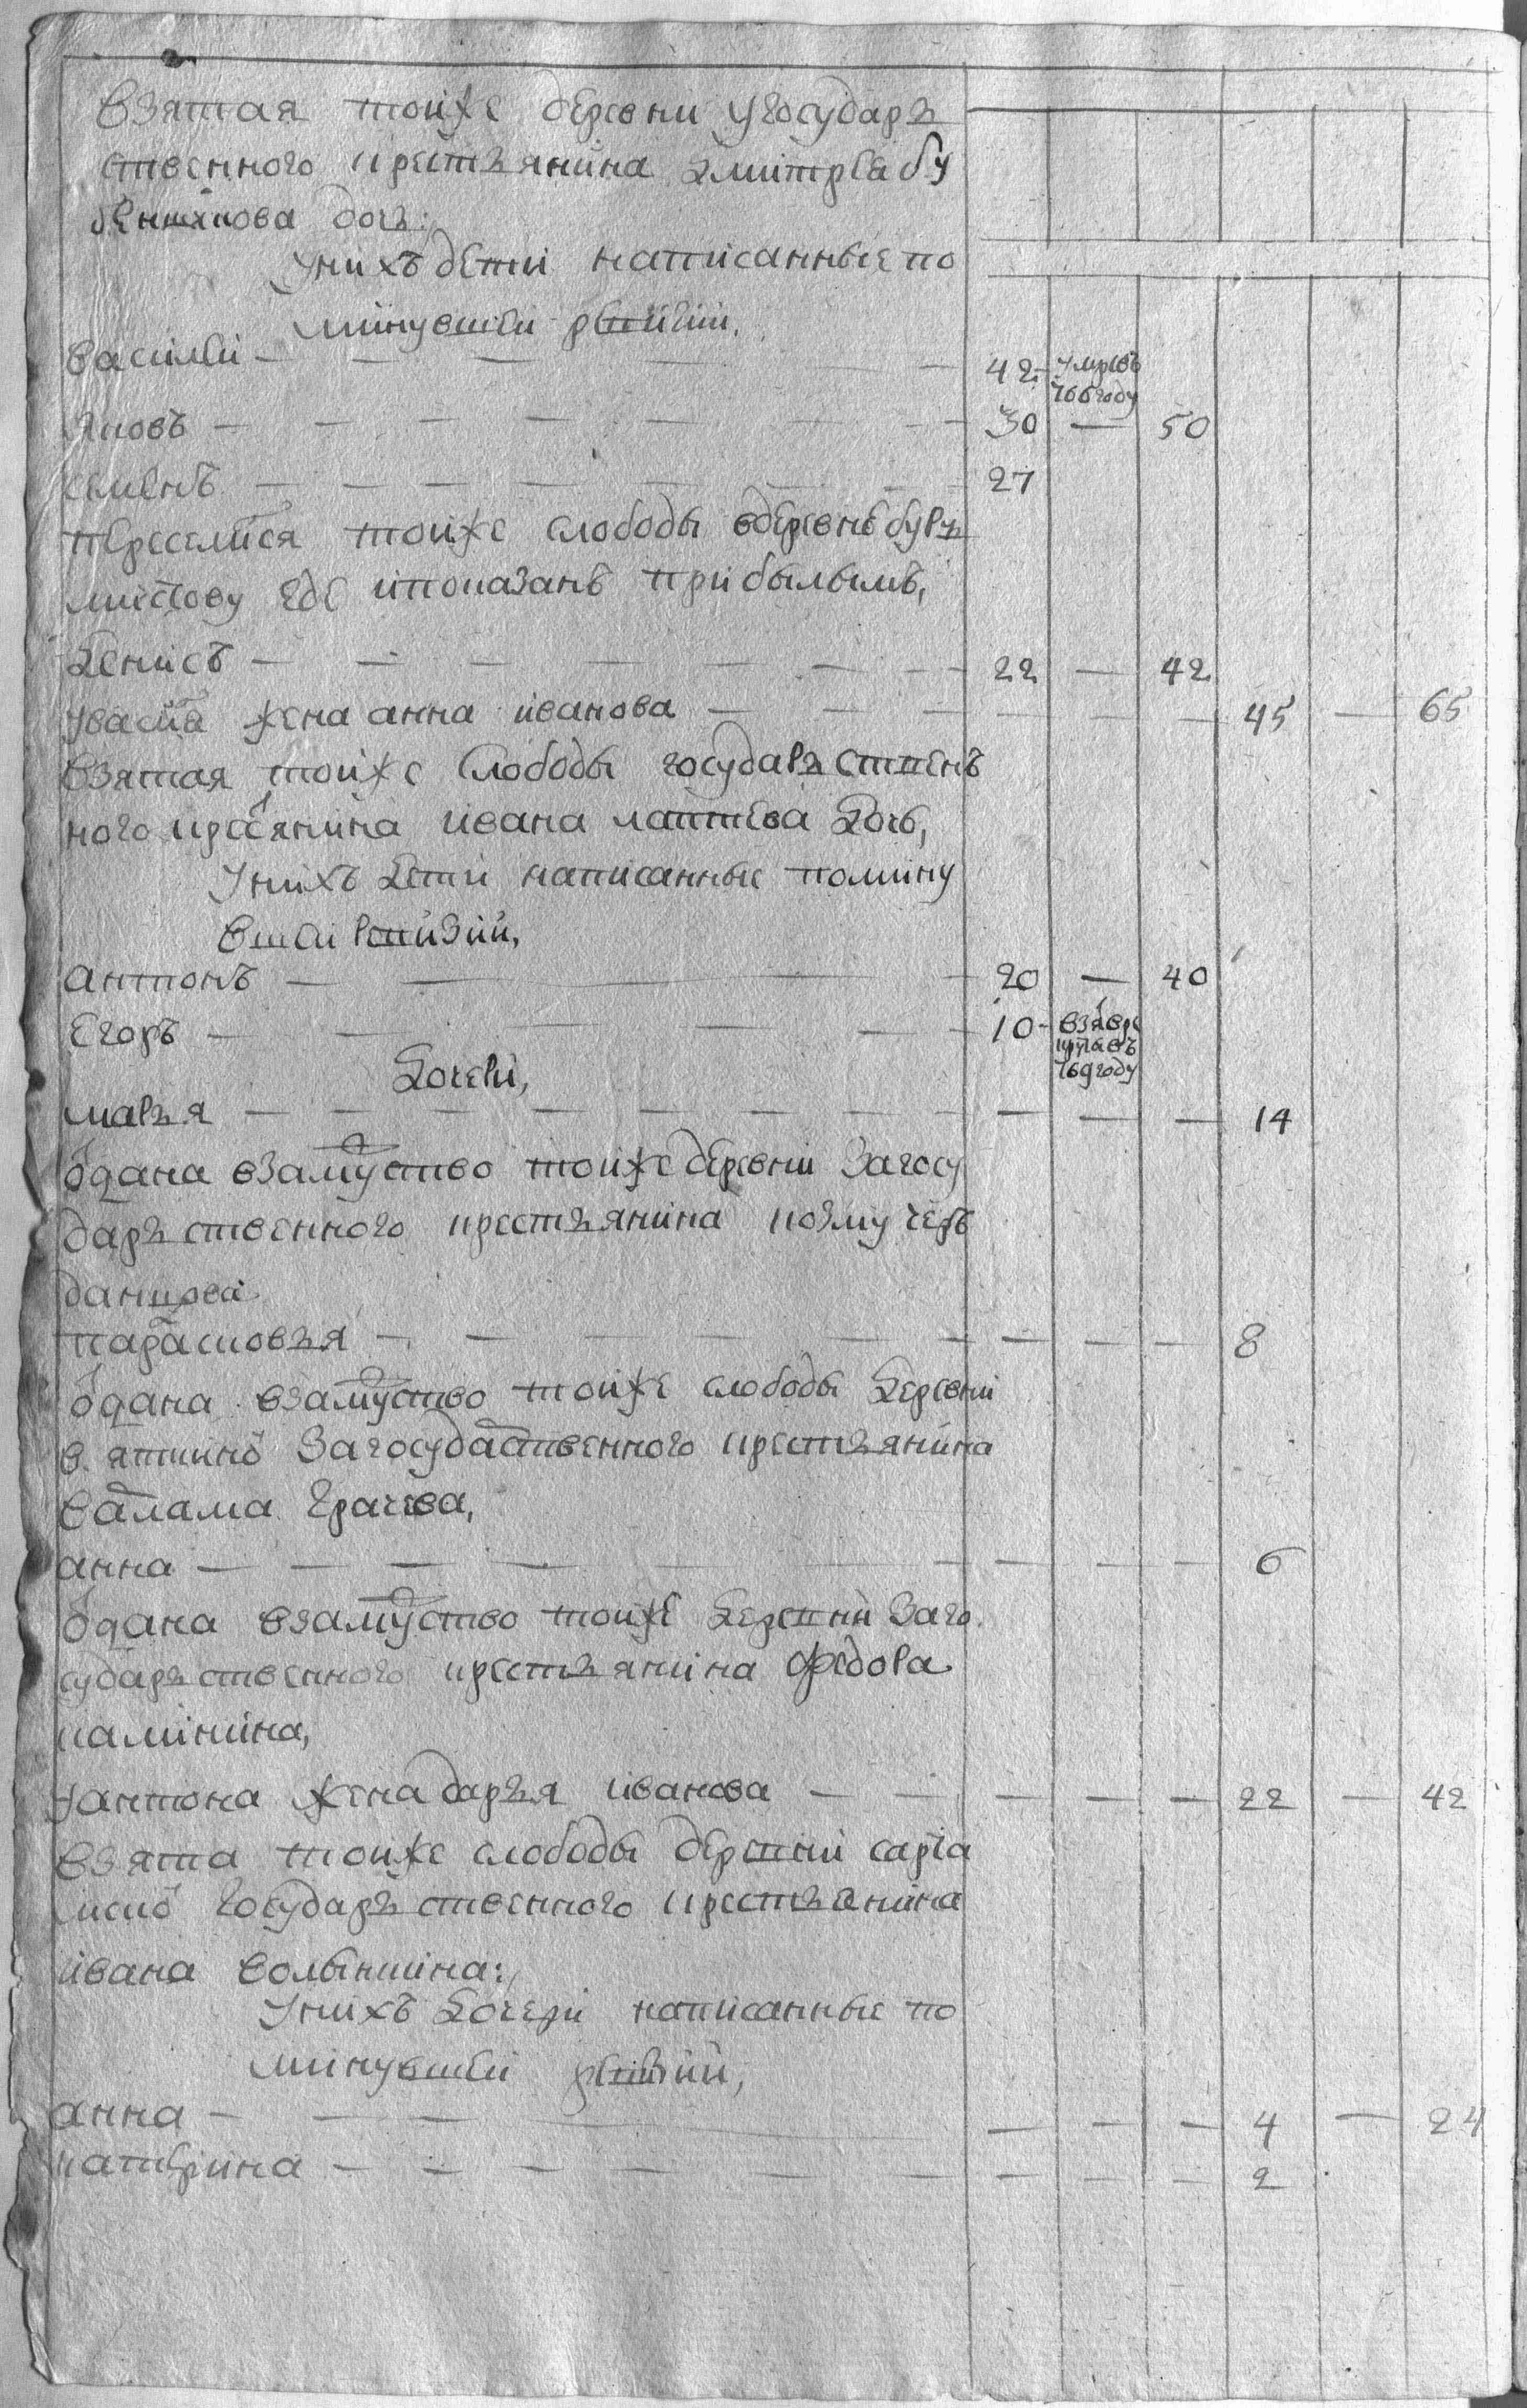 взятая тойже деревни угосударь
ственного крестьянина дмитрея бу
бенщикова дочь:
унихъ дети написанные по
минувшей ревизии,
василей — 42 — умревъ 766году
яковъ — 30 — 50
семенъ — 27
переселился тойже слободы вдеревне бурь
мистову где ипоказанъ прибылымъ,
денисъ — 22 — 42
увасилья жена анна иванова — 45 — 65
взятая тойже слободы государьствень
ного крестьянина ивана лаптева дочь,
унихъ дети написанные помину
вшеи ревизии,
антонъ — 20 — 40
егоръ — 10 — взявъ рекруты 769году
дочери,
марья — 14
одана взамуство тойже деревни загосу
дарьственного крестьянина козму чер
данцова
парасковья — 8
одана взамуство тойже слободы деревни
вяткино загосударственного крестьянина
варлама грачева,
анна — 6
одана взамуство тойже деревни заго
сударьственного крестьянина федора
калинина,
уантона жена дарья иванова — 22 — 42
взята тойже слободы деревни
государьственного крестьянина
ивана волынкина:,
унихъ дочери написанные по
минувшей ревизии,
анна — 4 — 24
катерина — 2